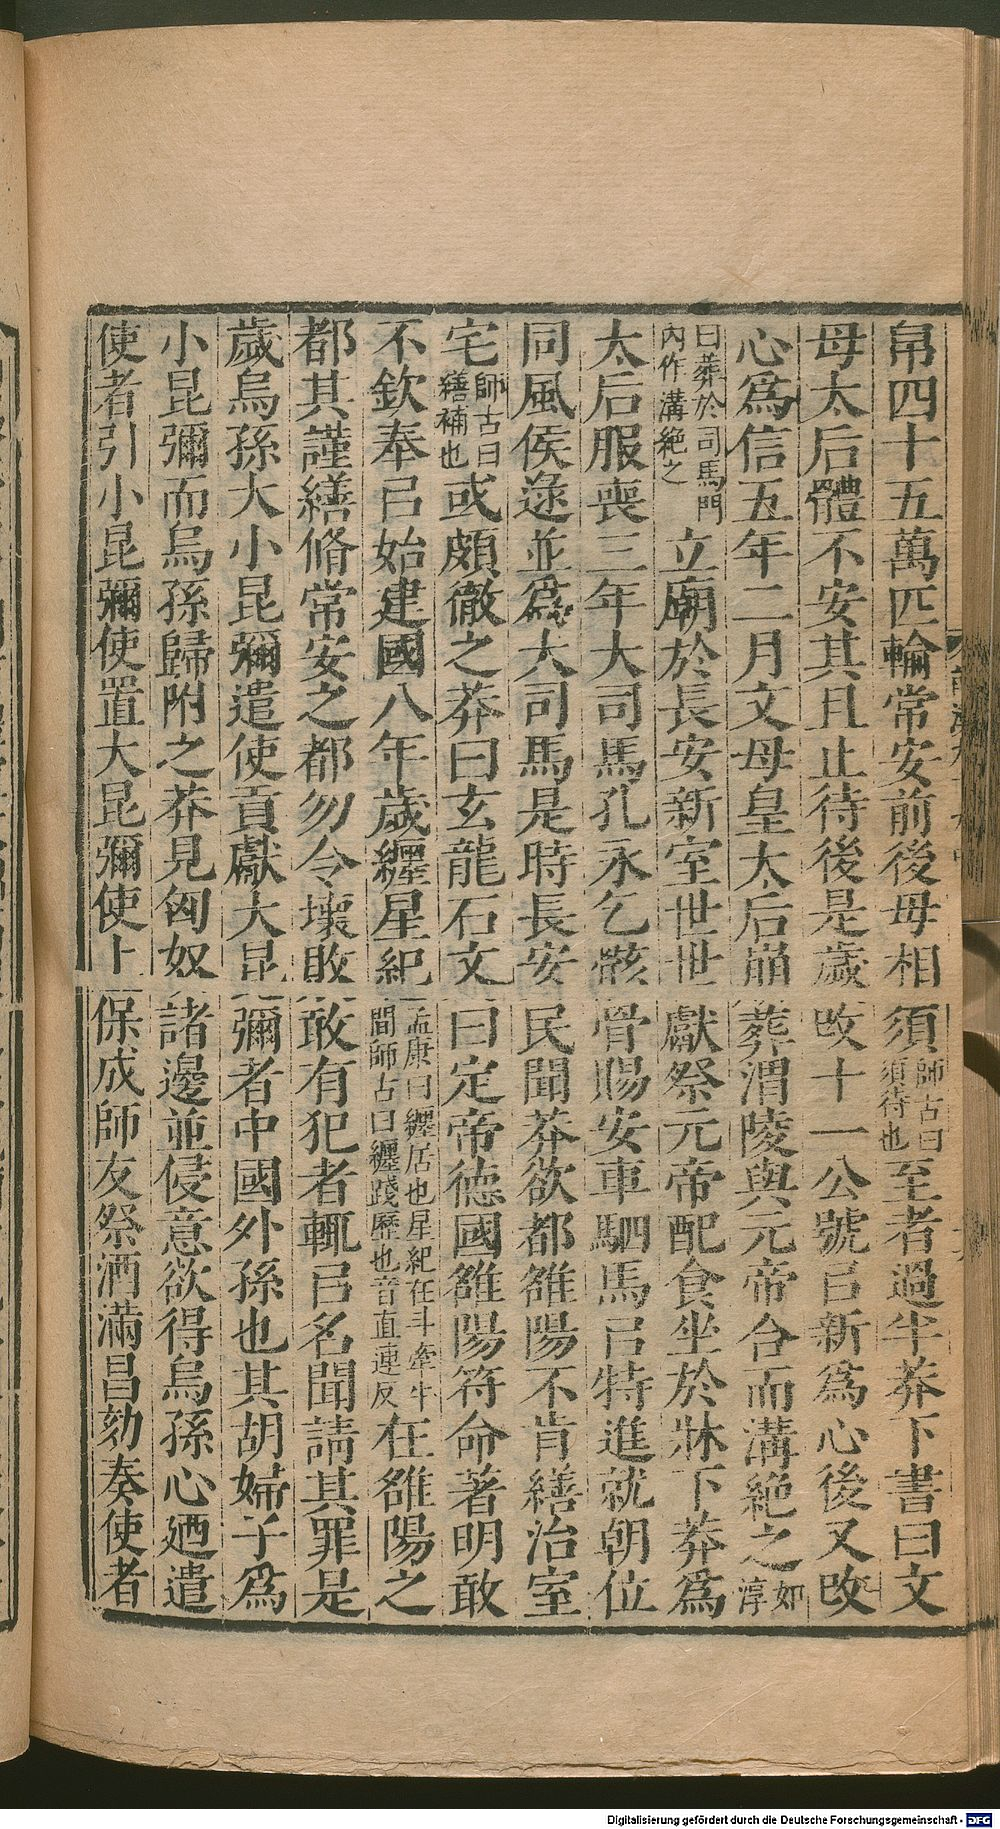 帛四十五萬匹輸常安前後毋相須師古曰須待也至者過半莽下書曰文
母太后體不安其且止待後是歲改十一公號㠯新爲心後又改
心爲信五年二月文母皇太后崩葬渭陵與元帝合而溝絶之如淳
曰葬於司馬門內作溝絶之立廟於長安新室世世獻祭元帝配食坐於牀下莽爲
太后服喪三年大司馬孔永乞骸骨賜安車駟馬㠯特進就朝位
同風侯逯並爲大司馬是時長安民聞莽欲都雒陽不肯繕治室
宅師古曰繕補也或頗徹之莽曰玄龍石文曰定帝德國雒陽符命著明敢
不欽奉㠯始建國八年歲纏星紀孟康曰纏居也星紀在斗牽牛間師古曰纏踐歷也音直連反在雒陽之
都其謹繕脩常安之都勿令壞敗敢有犯者輒㠯名聞請其罪是
歲烏孫大小昆彌遣使貢獻大昆彌者中國外孫也其胡婦子爲
小昆彌而烏孫歸附之莽見匈奴諸邊並侵意欲得烏孫心廼遣
使者引小昆彌使置大昆彌使上保成師友祭酒滿昌劾奏使者
Digitalisierung gefördert durch die Deutsche Forschungsgemeinschaft - DFG